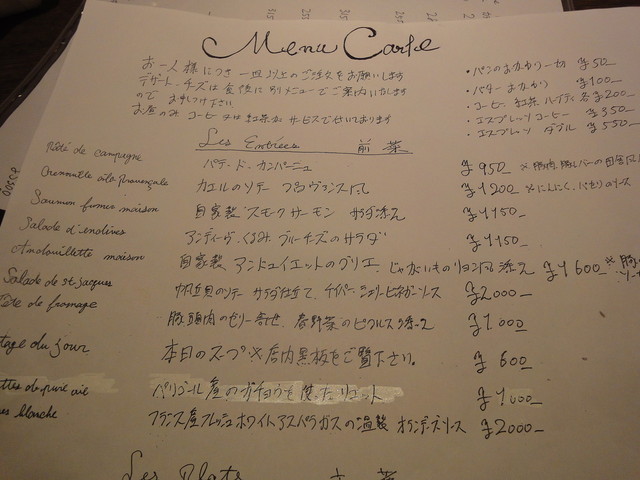 Menu Carte
お一人様につき 一皿以上のご注文をお願いします
デザート、チーズは食後に別メニューでご案内いたします
ので お申しつけ下さい。
お昼のみ コーヒー 又は 紅茶が サービスで付いております
・パンのおかわり 一切 ¥50
・バターおかわり ¥100
・コーヒー、紅茶、ハーブティ 各¥200
・エスプレッソ コーヒー ¥350
・エスプレッソ ダブル ¥550
Les Entrées 前菜
Pâté de campagne パテ・ド・カンパーニュ ¥950
Grenouille à la provençale カエルのソテー プロヴァンス風 ¥1200 ※にんにく、パセリのソース
Saumon fumer maison 自家製 スモークサーモン サラダ添え ¥1150
Salade d'endives アンディーヴ、くるみ、ブルーチーズのサラダ ¥1150
Andouillette maison 自家製 アンドュイエットのグリエ、じゃがいものリヨン風添え ¥1600
Salade de st jacques 帆立貝のソテー サラダ仕立て、ケイパー・シェリービネガーソース ¥2000
Tête de fromage 豚頭肉のゼリー寄せ、春野菜のピクルス ¥1000
tage du jour 本日のスープ ※店内黒板をご覧下さい。 ¥600
ttes de pure oie ペリゴール産のガチョウを使ったリエット ¥1000
es blanche フランス産フレッシュホワイトアスパラガスの温製 オランデーズソース ¥2000
Les Plats 主菜